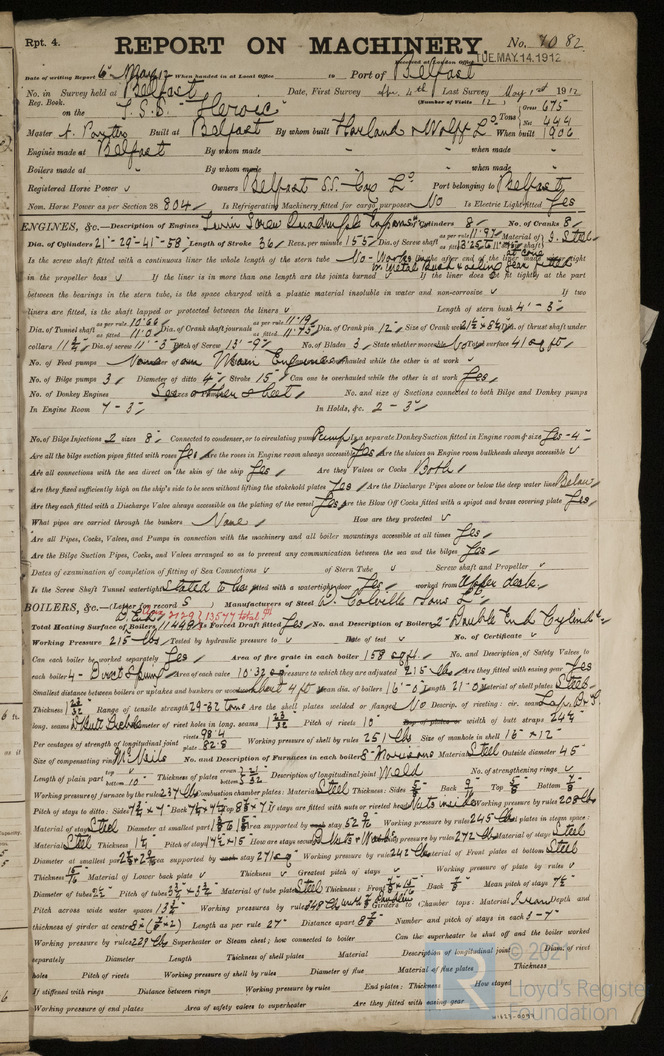 Rpt. 4.
REPORT ON MACHINERY.
No. 1082
Received at London Office TUE. MAY. 14. 1912
Date of writing Report 6th May 1912 When handed in at Local Office 19 Port of Belfast
No. in Survey held at Belfast Date, First Survey Apr. 4th Last Survey May 1st 1912
Reg. Book. (Number of Visits 12)
on the T.S.S. "Heroic" Tons Gross 675 Net 444
Master A. Porter Built at Belfast By whom built Harland & Wolff Ld When built 1906
Engines made at Belfast By whom made " " when made "
Boilers made at " By whom made " " when made "
Registered Horse Power √ Owners Belfast S.S. Coy Ld Port belonging to Belfast
Nom. Horse Power as per Section 28 804 Is Refrigerating Machinery fitted for cargo purposes No Is Electric Light fitted Yes
ENGINES, &c.—Description of Engines Twin Screw Quadruple Expansion No. of Cylinders 8 No. of Cranks 8
Dia. of Cylinders 21"-29"-41"-58" Length of Stroke 36 Revs. per minute 155 Dia. of Screw shaft as per rule 11.97 as fitted Material of screw shaft S. Steel
Is the screw shaft fitted with a continuous liner the whole length of the stern tube No Is the after end of the liner made water tight
in the propeller boss √ If the liner is in more than one length are the joints burned √ If the liner does not fit tightly at the part
between the bearings in the stern tube, is the space charged with a plastic material insoluble in water and non-corrosive √ If two
liners are fitted, is the shaft lapped or protected between the liners √ Length of stern bush 4'-3"
Dia. of Tunnel shaft as per rule 10.66 as fitted 11.0 Dia. of Crank shaft journals as per rule 11.19 as fitted 11.75 Dia. of Crank pin 12" Size of Crank webs 21½ x 8¼ Dia. of thrust shaft under
collars 11¾ Dia. of screw 11'-3" Pitch of Screw 13'-9" No. of Blades 3 State whether moveable No Total surface 41 sq ft
No. of Feed pumps None on Main Engines overhauled while the other is at work √
No. of Bilge pumps 3 Diameter of ditto 4" Stroke 15" Can one be overhauled while the other is at work Yes
No. of Donkey Engines See other sheet No. and size of Suctions connected to both Bilge and Donkey pumps
In Engine Room 7 - 3" In Holds, &c. 2 - 3"
No. of Bilge Injections 2 sizes 8" Connected to condenser, or to circulating pump Pump Is a separate Donkey Suction fitted in Engine room & size Yes - 4"
Are all the bilge suction pipes fitted with roses Yes Are the roses in Engine room always accessible Yes Are the sluices on Engine room bulkheads always accessible √
Are all connections with the sea direct on the skin of the ship Yes Are they Valves or Cocks Both
Are they fixed sufficiently high on the ship's side to be seen without lifting the stokehold plates Yes Are the Discharge Pipes above or below the deep water line Below
Are they each fitted with a Discharge Valve always accessible on the plating of the vessel Yes Are the Blow Off Cocks fitted with a spigot and brass covering plate Yes
What pipes are carried through the bunkers None How are they protected √
Are all Pipes, Cocks, Valves, and Pumps in connection with the machinery and all boiler mountings accessible at all times Yes
Are the Bilge Suction Pipes, Cocks, and Valves arranged so as to prevent any communication between the sea and the bilges Yes
Dates of examination of completion of fitting of Sea Connections √ of Stern Tube √ Screw shaft and Propeller √
Is the Screw Shaft Tunnel watertight Stated to be fitted with a watertight door Yes worked from Upper deck
BOILERS, &c.—(Letter for record S) Manufacturers of Steel D. Colville & Sons Ld
Total Heating Surface of Boilers 11448 Is Forced Draft fitted Yes No. and Description of Boilers 2 Double End Cylindl
Working Pressure 215 lbs Tested by hydraulic pressure to √ Date of test √ No. of Certificate √
Can each boiler be worked separately Yes Area of fire grate in each boiler 158 sq ft No. and Description of Safety Valves to
each boiler 4 - Direct Spring Area of each valve 10.32 sq Pressure to which they are adjusted 215 lbs Are they fitted with easing gear Yes
Smallest distance between boilers or uptakes and bunkers or woodwork about 4 ft Mean dia. of boilers 16'-0" Length 21'-0 Material of shell plates Steel
Thickness 1 23/32 Range of tensile strength 29-32 tons Are the shell plates welded or flanged No Descrip. of riveting: cir. seams Lap. D.R.
long. seams D. Butt Diameter of rivet holes in long. seams 1 23/32 Pitch of rivets 10" width of butt straps 24½
Per centages of strength of longitudinal joint rivets 98.4 plate 82.8 Working pressure of shell by rules 251 lbs Size of manhole in shell 16" x 12"
Size of compensating ring McNeils No. and Description of Furnaces in each boiler 8-Morisons Material Steel Outside diameter 45"
Length of plain part top √ bottom 10" Thickness of plates crown bottom Description of longitudinal joint Weld No. of strengthening rings √
Working pressure of furnace by the rules 237 lbs Combustion chamber plates: Material Steel Thickness: Sides 5/8 Back 9/16 Top 5/8 Bottom 7/8
Pitch of stays to ditto: Sides Back Top If stays are fitted with nuts or riveted heads Nuts inside Working pressure by rules 208 lbs
Material of stays Steel Diameter at smallest part Area supported by each stay 52 Working pressure by rules 245 lbs End plates in steam space:
Material Steel Thickness 1¼ Pitch of stays 14½ x 15 How are stays secured D. Nuts & Washrs Working pressure by rules 242 lbs Material of stays Steel
Diameter at smallest part Area supported by each stay 271 sq" Working pressure by rules 242 lbs Material of Front plates at bottom Steel
Thickness 15/16 Material of Lower back plate √ Thickness √ Greatest pitch of stays √ Working pressure of plate by rules √
Diameter of tubes 2½ Pitch of tubes 3¾ x 3¾ Material of tube plates Steel Thickness: Front Back 7/8 Mean pitch of stays 7½
Pitch across wide water spaces 13½ Working pressures by rules Girders to Chamber tops: Material Depth and
thickness of girder at centre Length as per rule 27" Distance apart Number and pitch of stays in each 3 - 7"
Working pressure by rules 229 lbs Superheater or Steam chest; how connected to boiler Can the superheater be shut off and the boiler worked
separately Diameter Length Thickness of shell plates Material Description of longitudinal joint Diam. of rivet
holes Pitch of rivets Working pressure of shell by rules Diameter of flue Material of flue plates Thickness
If stiffened with rings Distance between rings Working pressure by rules End plates: Thickness How stayed
Working pressure of end plates Area of safety valves to superheater Are they fitted with easing gear
© 2021
Lloyd's Register
Foundation